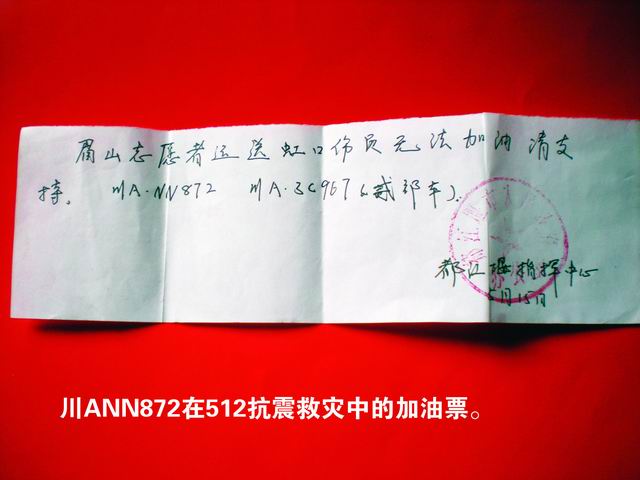 眉山志愿者运送虹口伤员无法加油请支
持。 川A·NN872 川A·3C967(贰部车).
都江堰指挥中心
5月15日
川ANN872在512抗震救灾中的加油票。